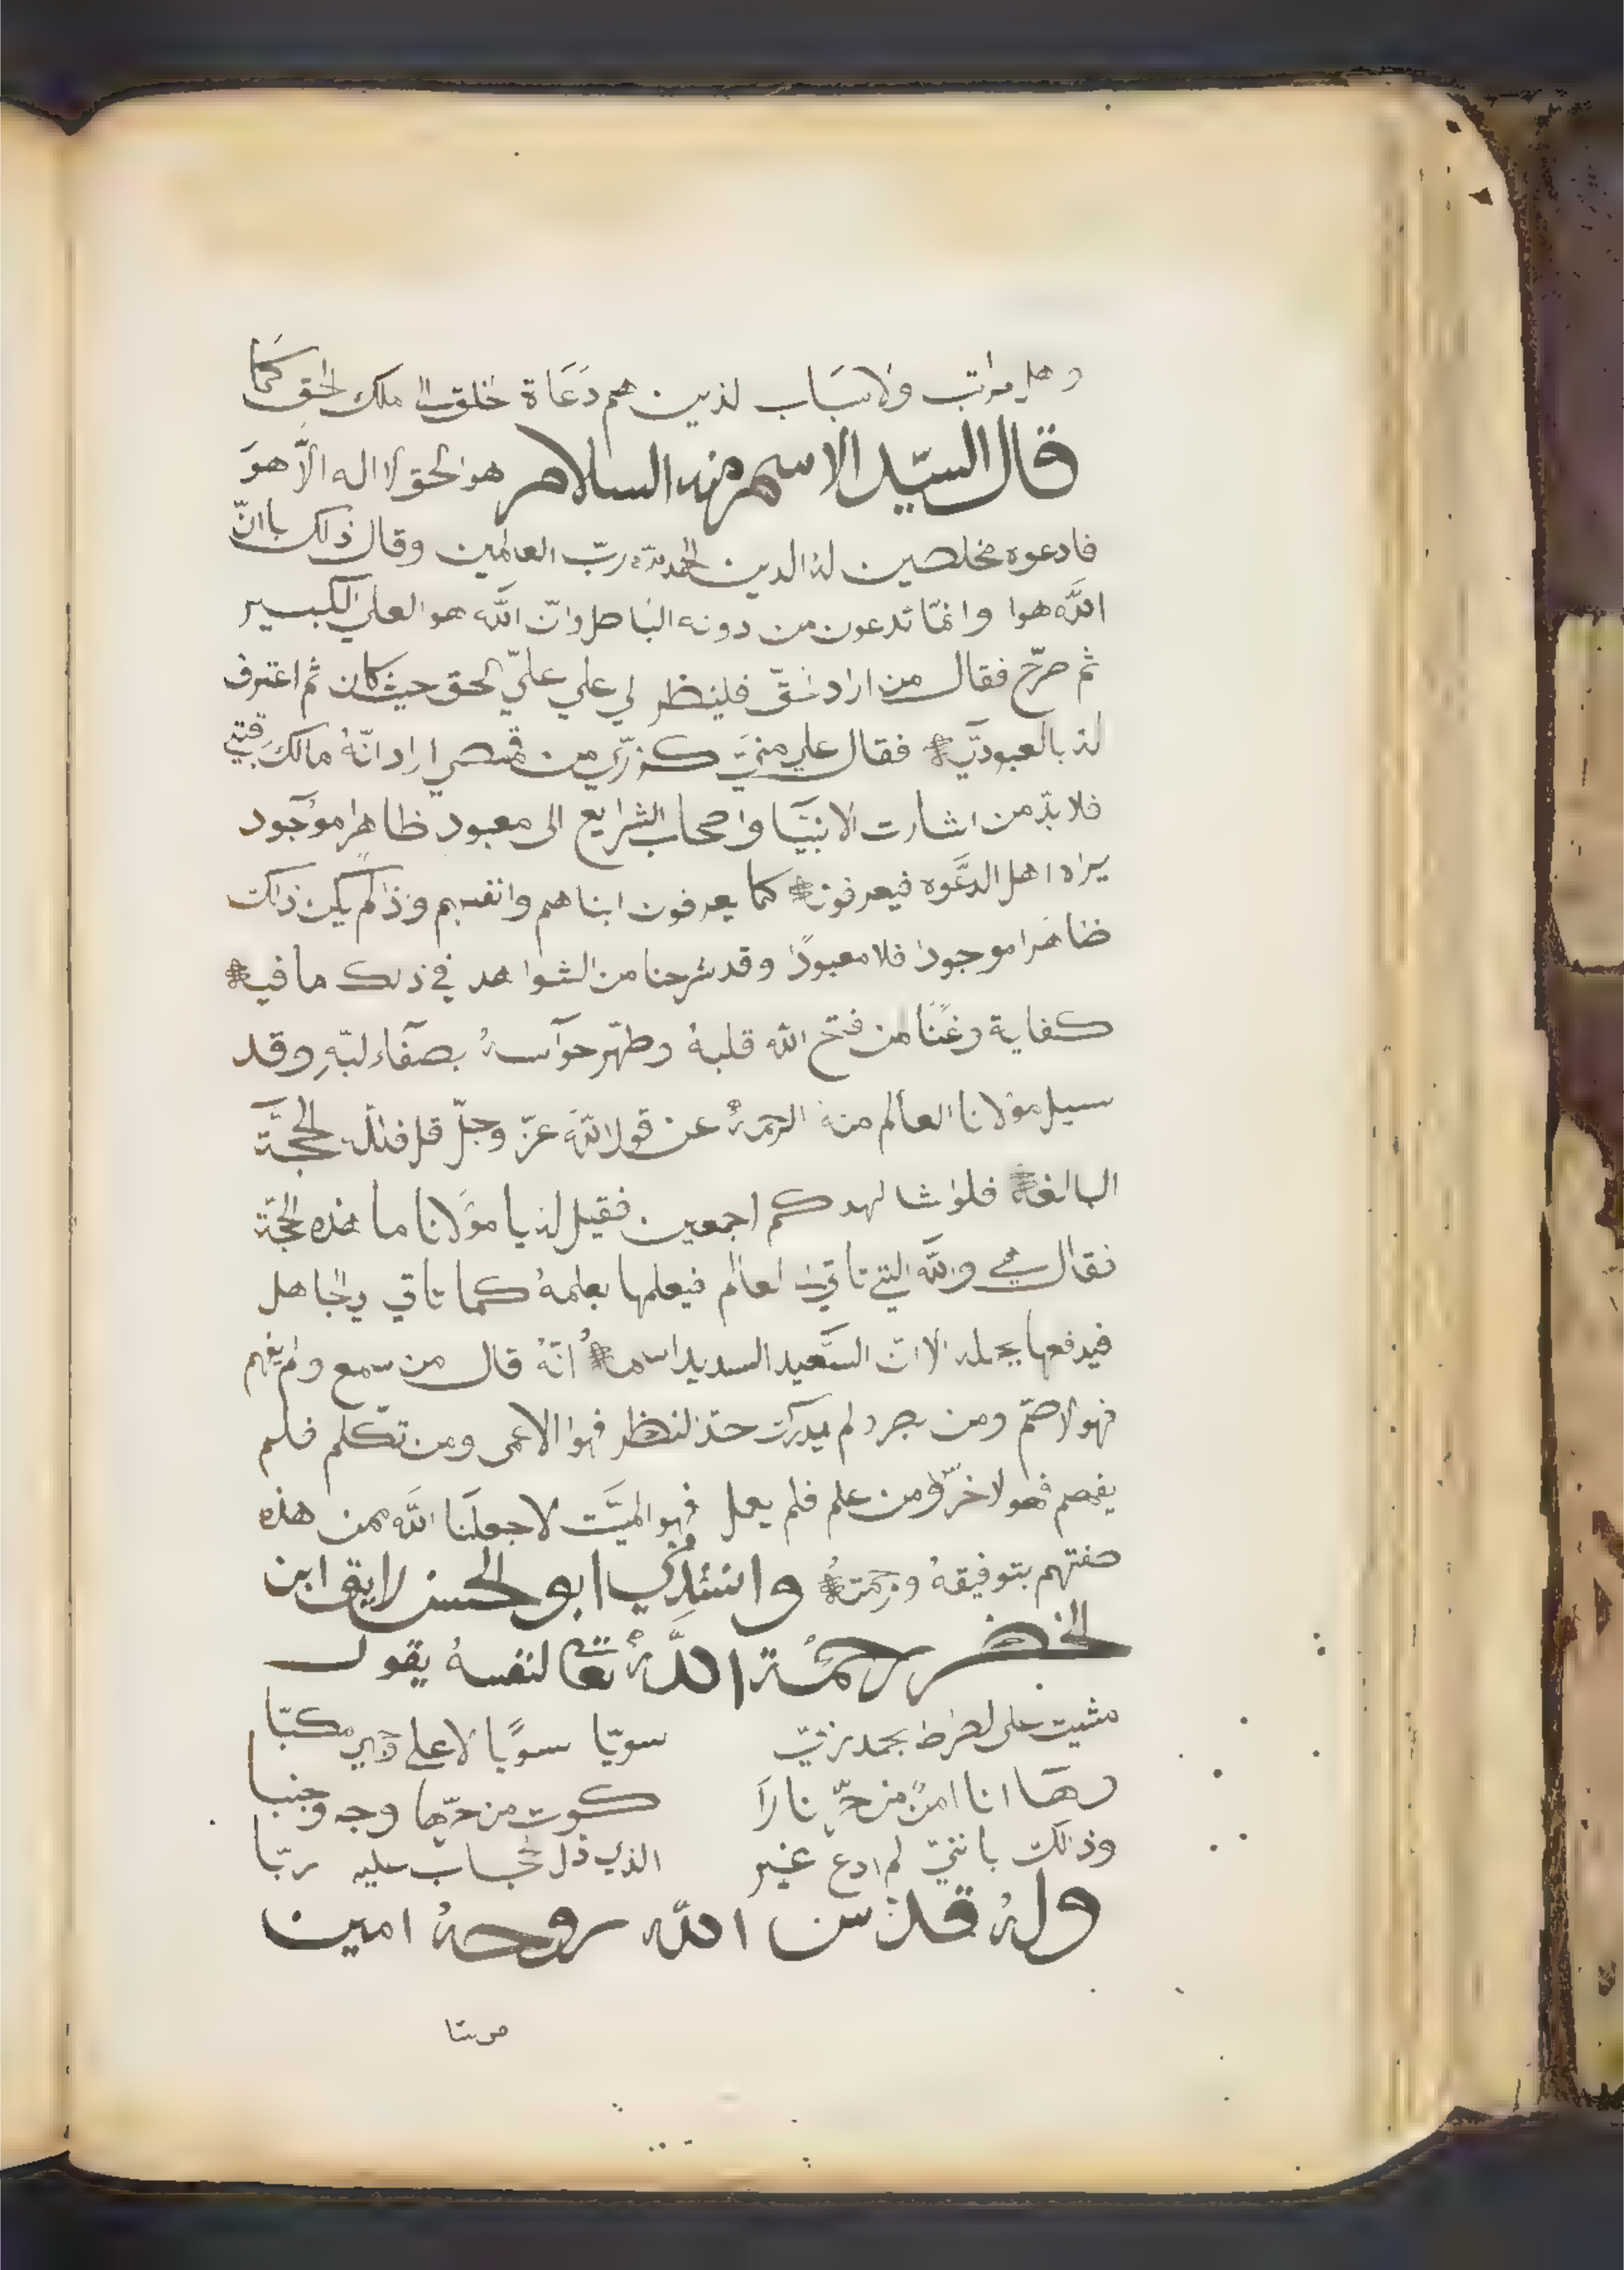 وهل مراتب ولاسباب لذين هم دعاة خلق الا ملك الحق كما
قال السيّد الاسم منه السلام هو الحق لا اله الّا هو
فادعوه مخلصين له الدين الحمد لله ربّ العالمين وقال ذلك باانّ
اللّه هوا وانمّا تدعون من دونه الباطل وانّ اللّه هو العلي الكبير
ثم صرّح فقال من اراد فلينظر لي علي عليّ الحق حيث كان ثم اعترف
له بالعبوديّه فقال علي منيّ كزرّي من قمصي اراد انّهُ مالك
فلا بدّ من اشارت الانبيّا واصحاب الشرايع الى معبود ظاهرا موجود
يراه اهل الدعّوه فيعرفونه كما يعرفون ابناهم وانفسهم وذالم يكن ذلك
ظاهرا موجودا فلا معبودًا وقد شرحنا من الشواهد في ذلك ما فيه
كفاية وغنًا لمن فتح اللّه قلبهُ وطهّر حوآسهُ بصفآء لبّهِ وقد
سيل مولانا العالم منهُ الرحمهُ عن قول اللّه عزّ وجلّ قل فللّه الحجّة
البالغه فلو شا لهدكم اجمعين فقيل له يا مولانا ما هذه الحجّة
فقال هي واللّه التي تاتي العالم فيعلمها بعلمهُ كما تاتي الجاهل
فيدفعها بجهله الا انّ السّعيد السديد انّهُ قال من سمع ولم يفهم
فهو لاصمّ ومن بصر ولم يدرك حدّ النظر فهوا الاعمى ومن تكلم فلم
يفصم فهو لاخرّ ومن علم فلم يعمل فهو الميّت لا جعلنا اللّه ممن هذه
صفتهم بتوفيقهُ ورحمتهُ وانشدني ابو الحسن لايقى ابن
الخضر رحمة اللّه تعا لنفسهُ يقول
مشيت على لصراط بحمد ربّي سويّا سويًا لا على مكبّا
وها انا امنً من حرّ نارًا كوت من حرّها وجه وجنبا
وذلك باننيّ لم ادع غير الذي دل حجاب عليه ربّا
ولهُ قدّس اللّه روحهُ امين